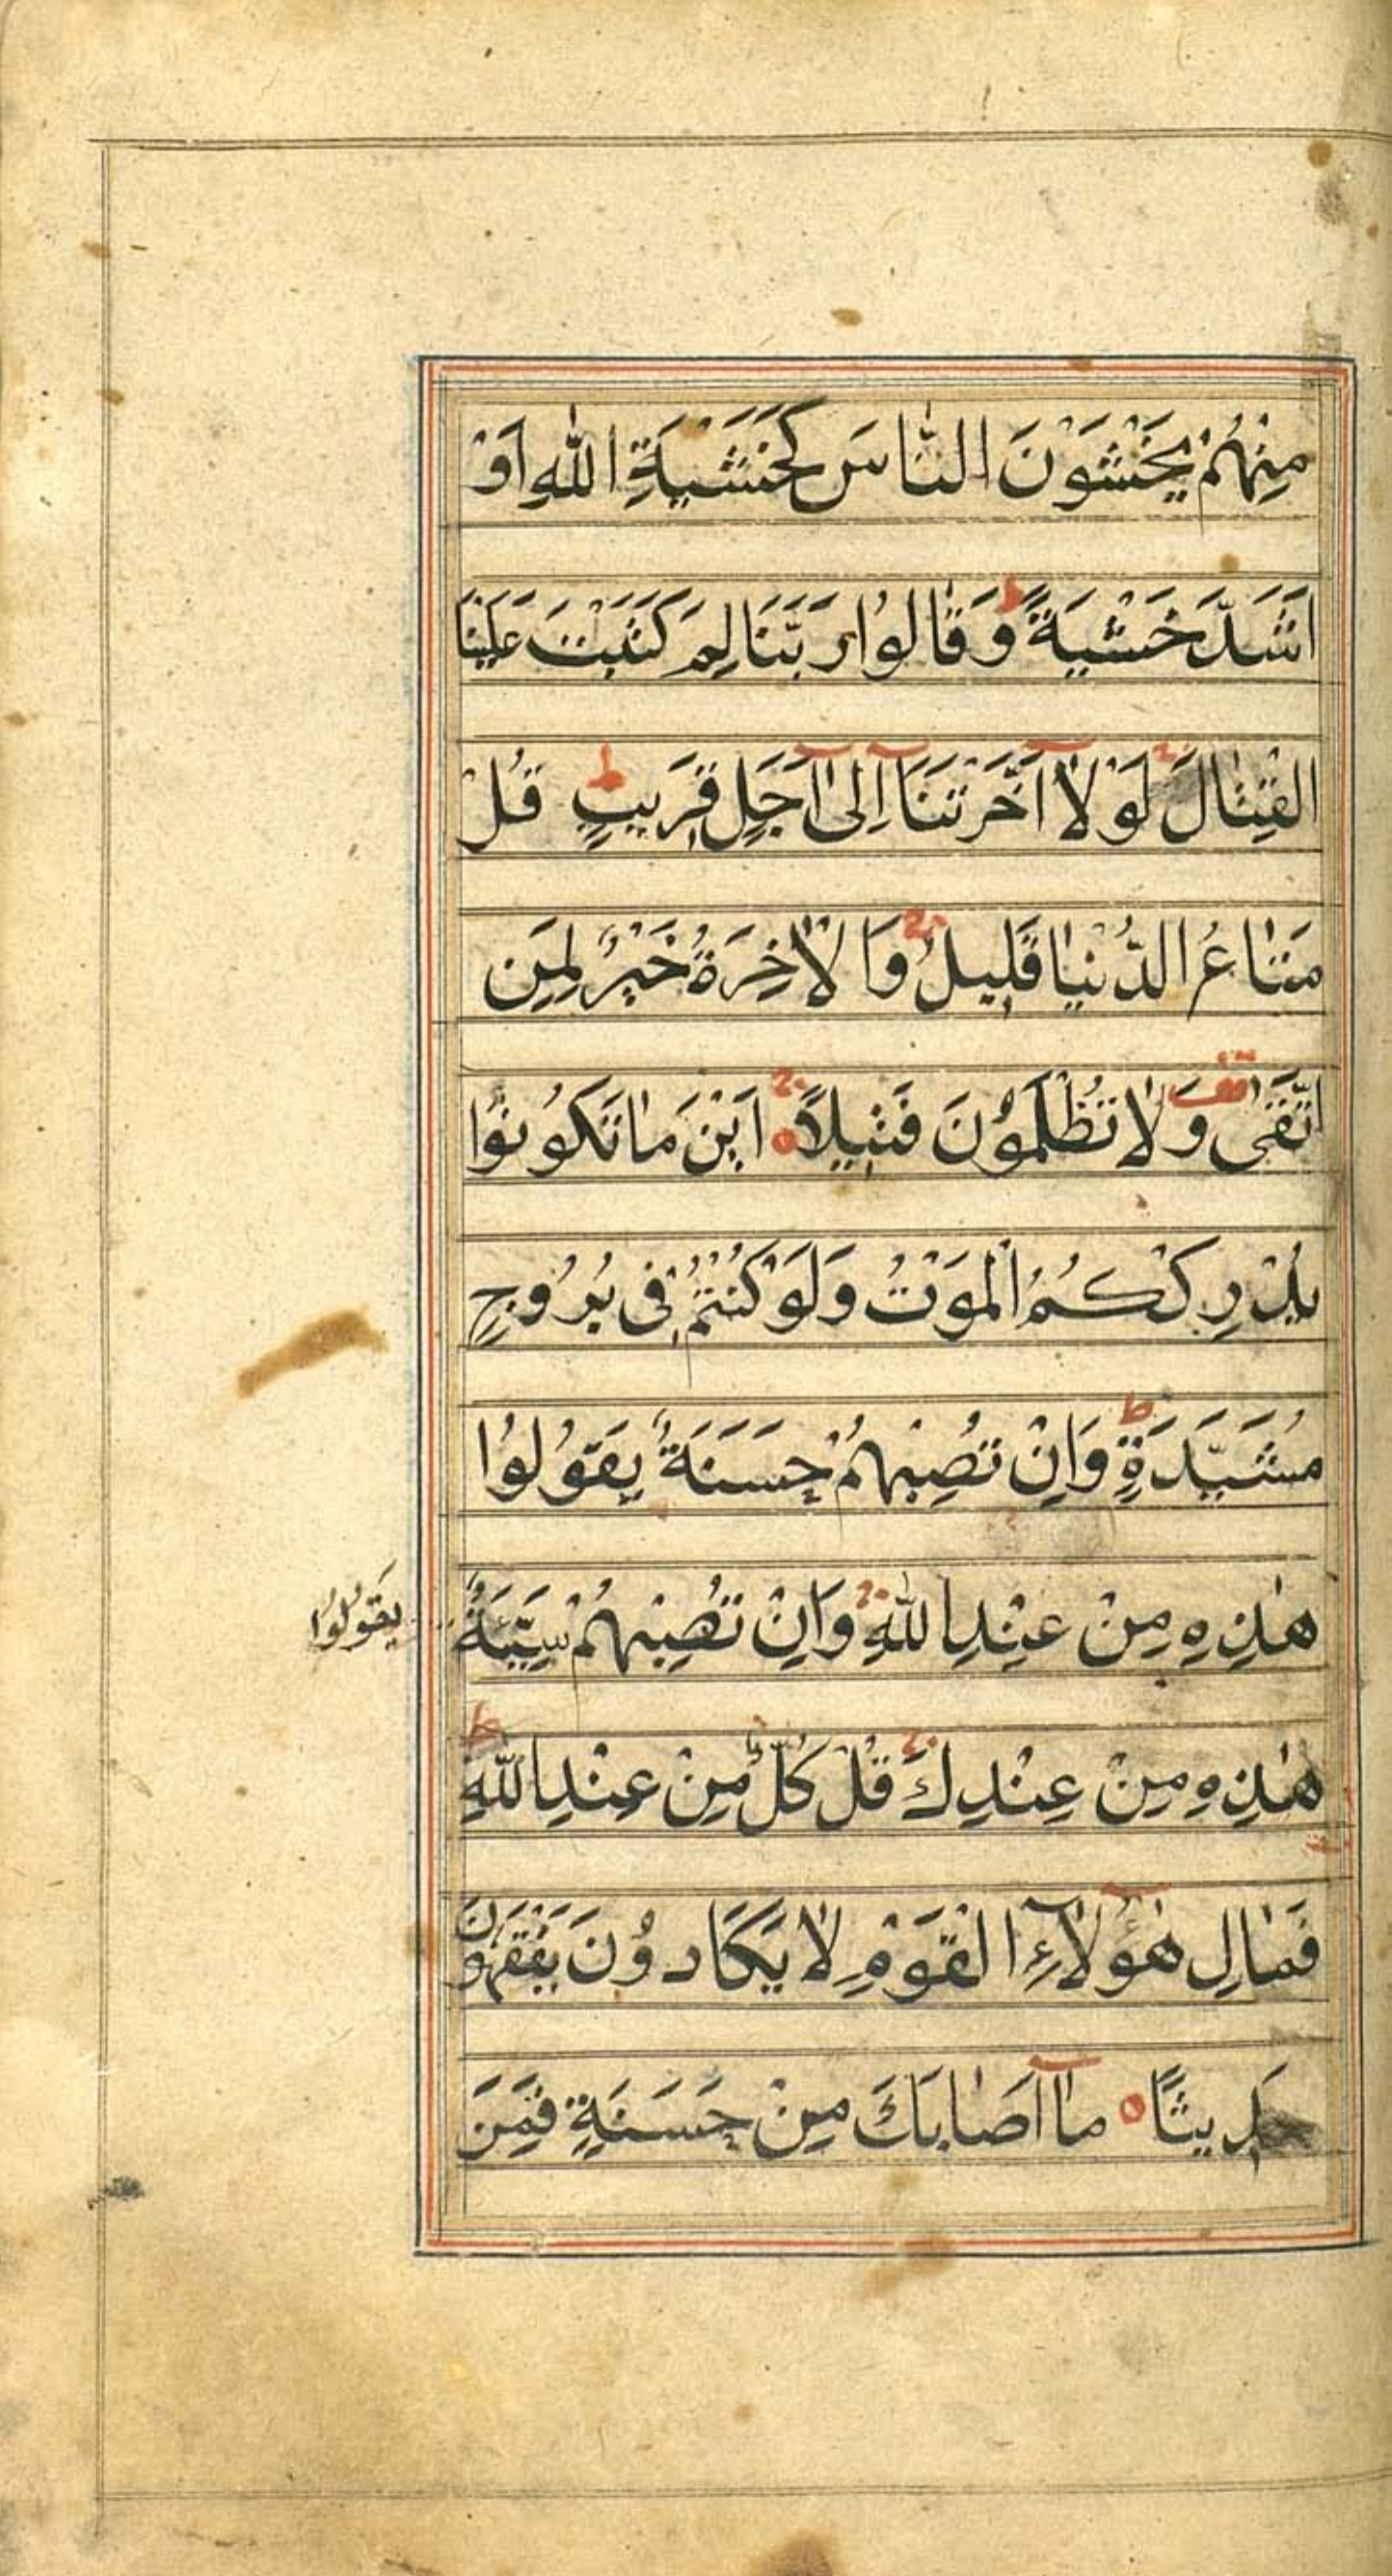 مِنْهُمْ يَخْشَوْنَ النَّاسَ كَخَشْيَةِ اللهِ اَوْ
اَشَدَّ خَشْيَةً ط وَقَالُوا رَبَّنَا لِمَ كَتَبْتَ عَلَيْنَا
الْقِتَالَ ج لَوْلَا اَخَّرْتَنَا اِلىٰ اَجَلٍ قَرِيبٍ ط قُلْ
مَتَاعُ الدُّنْيَا قَلِيلٌ ج وَالْاٰخِرَةُ خَيْرٌ لِمَنِ
اتَّقىٰ قف وَلَا تُظْلَمُونَ فَتِيلًا ج اَيْنَ مَا تَكُونُوا
يُدْرِكْكُمُ الْمَوْتُ وَلَوْ كُنْتُمْ فِى بُرُوجٍ
مُشَيَّدَةٍ ط وَاِنْ تُصِبْهُمْ حَسَنَةٌ يَقُولُوا
هٰذِهِ مِنْ عِنْدِ اللهِ ج وَاِنْ تُصِبْهُمْ سَيِّئَةٌ
يَقُولُوا
هٰذِهِ مِنْ عِنْدِكَ ج قُلْ كُلٌّ مِنْ عِنْدِ اللهِ ط
فَمَالِ هٰؤُلَاءِ الْقَوْمِ لَا يَكَادُونَ يَفْقَهُونَ
حَدِيثًا مَا اَصَابَكَ مِنْ حَسَنَةٍ فَمِنَ